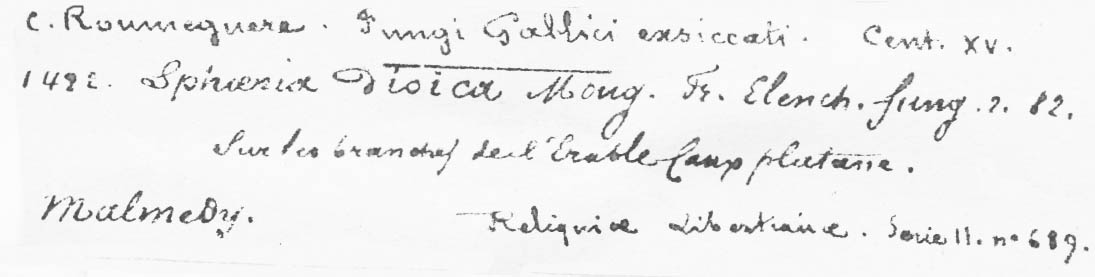 C. Roumeguere. Fungi Gallici exsiccati. Cent. XV.
Sphæria dioica Moug. Fr. Elench. fung. 2. 82.
Sur les branches de l'Erable faux platane.
Malmedy. Reliquiæ Libertianæ. Serie II. nº 689.